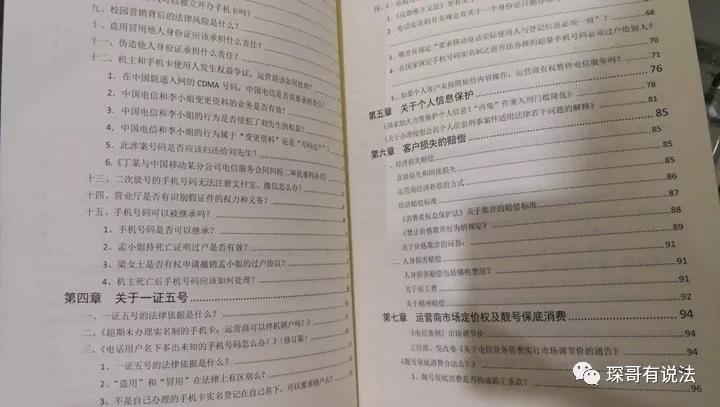 九、校园营销背后的法律风险是什么?
十、盗用冒用他人身份证应该承担什么责任?
十一、伪造他人身份证应承担什么责任?
十二、机主和手机卡使用人发生权益争议,运营商该如何处理?
1.在中国联通入网的CDMA号码,中国电信是否需要承担责任?
2.中国电信和李小姐变更资料的业务是否有效?
3.中国电信和李小姐的行为是否侵犯了刘先生的权益?
4.中国电信和李小姐的行为属于“变更资料”还是“号码过户”?
5.此涉案号码是否应该归还给刘先生?
6.《丁某与中国移动某分公司电信服务合同纠纷二审裁事判决书》
十三、二次放号的手机号码无法注册支付宝、微信怎么办?
十四、营业厅是否有识别假证件的权力和义务?
十五、手机号码可以被继承吗?
1、手机号码是否可以继承?
2、孟小姐持死亡证明过户是否有效?
3、梁女士是否有权申请撤销孟小姐的过户协议?
4、机主死亡后手机号码应该如何处理?
第四章 关于一证五号
一、一证五号的法律依据是什么?
二、《超期未办理实名制的手机卡,运营商可以停机销户吗?》
三、《电话用户名下多出未知的手机号码怎么办?》(修订版)
1、一证五号的法律依据是什么?
2、“盗用”和“冒用”在法律上有区别么?
3、不是自己办理的手机卡实名登记在自己名下,可以要求销户么?
1、《反恐怖主义法》里有关
2、电话实名制有关规定有关于一个身份证只能办理
67
3、哪里有规定“要求移动电话实际使用人与登记信息必须一致”?
68
4、在国家规定手机号码实名制之前合法办理的超量手机号码必须过户给别人?
70
71
5、如果个人客户未按照短信内容操作,运营商有权暂停电信服务吗?
76
第五章 关于个人信息保护
《国家加大力度保护个人信息!“内鬼”作案入刑门槛降低》
78
《关于办理侵犯公民个人信息刑事案件适用法律若干问题的解释》
81
第六章 客户损失的赔偿
85
一、经济损失赔偿
85
直接损失和间接损失
85
运营商经济补偿的方式
86
经济赔偿标准
87
《消费者权益保护法》关于欺诈的赔偿标准
87
《禁止价格欺诈行为的规定》
88
关于价格欺诈的问答:
89
二、人身损害赔偿
91
人身损害赔偿包括哪些费用?
91
关于误工费
91
关于精神赔偿
92
第七章 运营商市场定价权及靓号保底消费
94
《电信条例》市场调节价
94
工信部、发改委《关于电信业务资费实行市场调节价的通告》
94
《靓号保底消费合法么?》
1、靓号保底消费是否构成霸王条款?
96
琛哥有说法